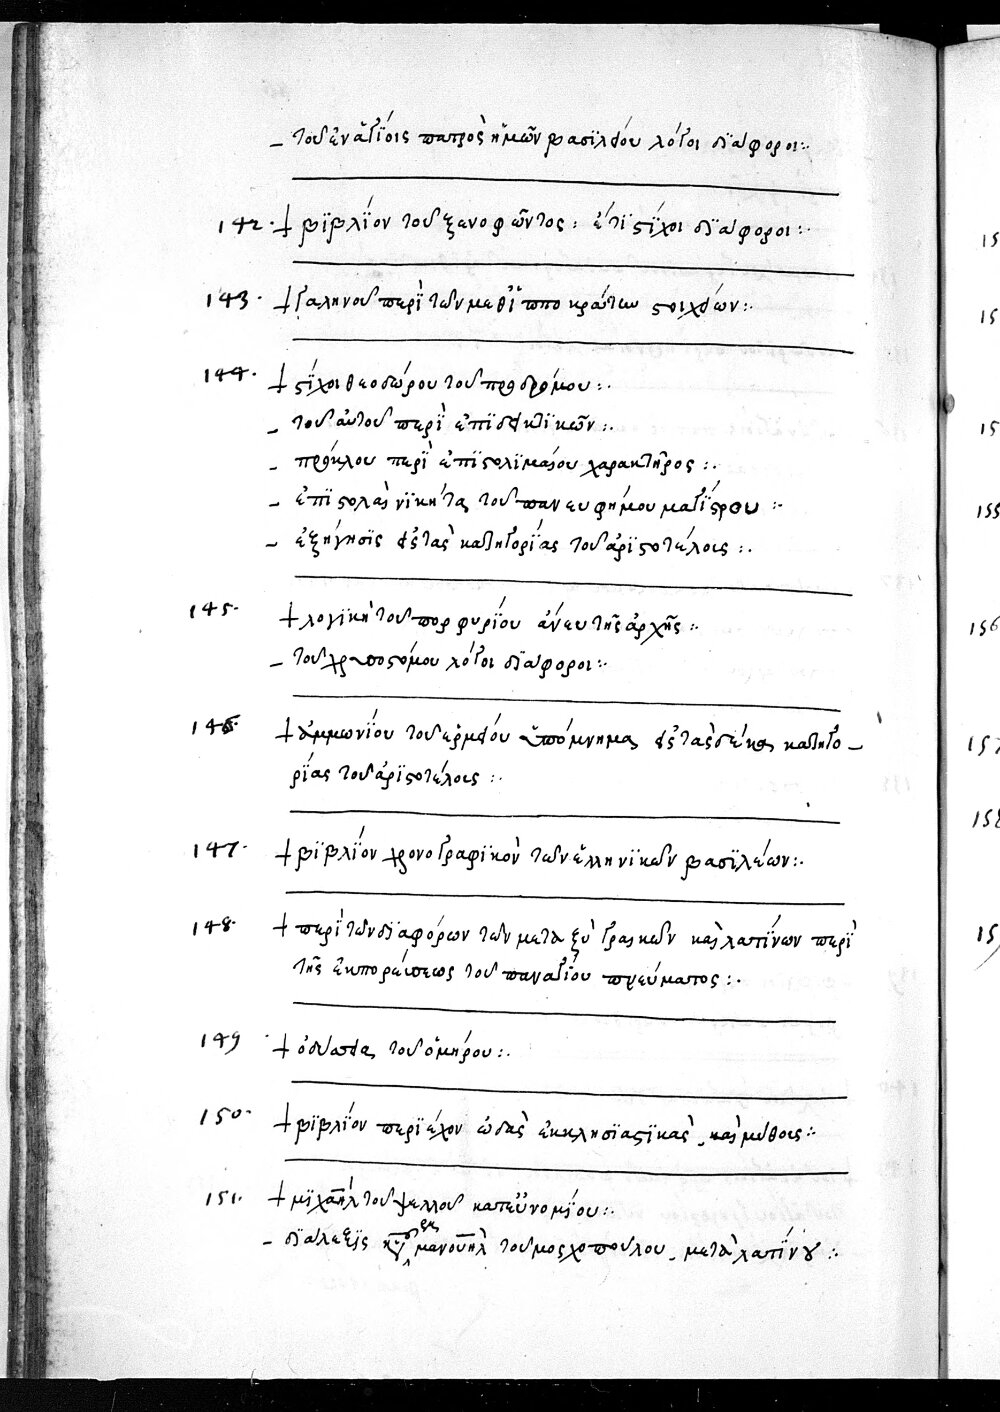 _ τοῦ ἐν ἁγίοις πατρὸς ἡμῶν βασιλείου λόγοι διάφοροι :·
142· + βιβλίον τοῦ ξενοφῶντος : ἔτι στίχοι διάφοροι :·
143· + γαληνοῦ περὶ τῶν μεθ' ἱπποκράτων στοιχείων :·
144· + στίχοι θεοδώρου τοῦ προδρόμου :·
_ τοῦ αὐτοῦ περὶ ἐπιδεικτικῶν :·
_ πρόκλου περὶ ἐπιστολιμαίου χαρακτῆρος :·
_ ἐπιστολαὶ νικήτα τοῦ πανευφήμου μαγίστρου :·
_ ἐξήγησις εἰς τὰς κατηγορίας τοῦ ἀριστοτέλους :·
145· + λογικὴ τοῦ πορφυρίου ἄνευ τῆς ἀρχῆς :·
_ τοῦ χρυσοστόμου λόγοι διάφοροι :·
146· + ἀμμωνίου τοῦ ἑρμείου ὑπόμνημα εἰς τὰς δέκα κατηγο_
ρίας τοῦ ἀριστοτέλους :·
147· + βιβλίον χρονογραφικὸν τῶν ἑλληνικῶν βασιλείων :·
148· + περὶ τῶν διαφόρων τῶν μεταξὺ γραικῶν καὶ λατίνων περὶ
τῆς ἐκπορεύσεως τοῦ παναγίου πνεύματος :·
149 + ὀδύσσεια τοῦ ὁμήρου :·
150· + βιβλίον περιέχον ὠδὰς ἐκκλησιαστικὰς, καὶ μύθους :·
151· + μιχαὴλ τοῦ ψελλοῦ κατ' εὐνομίου :·
_ διάλεξις μανουὴλ τοῦ μοσχοπούλου, μετὰ λατίνου :·
15
15
15
155
156
157
158
15